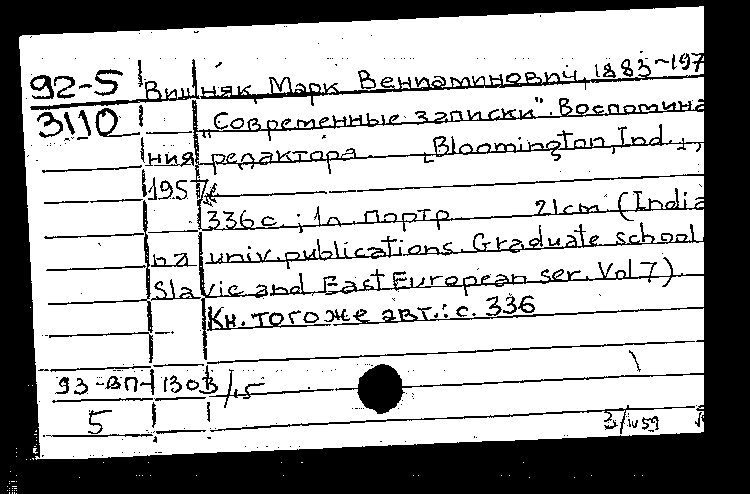 92-5 Вишняк, Марк Вениаминович, 1883-197
3110 „Современные записки". Воспомина
ния редактора. Bloomington, Ind.,
1957
336 с.; 1 л. портр 21 cm (India
na univ. publications. Graduate school.
Slavic and East European ser. Vol 7).
Кн. того же авт.: с. 336
93-ВП-1303/15
5 3/IV 59